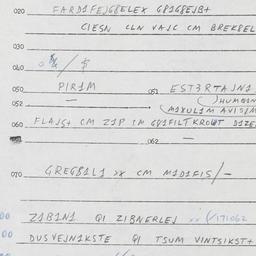 020 FARD1FEJG8ELEX G81G8EJB+
CIESN CLN VAJC CM BREKPEL
030
040 /$
050 PIR1M 051 EST3RTAJN1
052 — (HUMOUN
M1XUL1M AVISIM
060 FLAJS+ CM Z1P IM G81FILTKROWT D1ZE
062 —
070 GREGB1L1 xx CM M1D1FIS/—
00 Z1B1N1 QI Z1BNERLEJ xx (/171062
00 DUSVEJN1KSTE QI TSUM VINTSIKST+